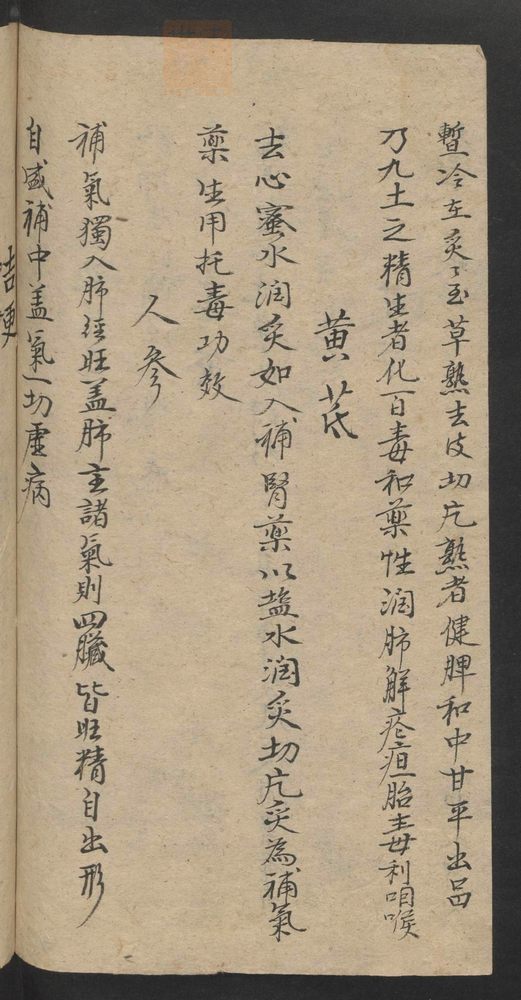 暫冷在炙〻至草熟去皮切片熟者健脾和中甘平出品
乃九土之精生者化百毒和藥性润肺解瘡疸胎毒利咽喉
黄芪
去心蜜水润炙如入補腎藥以盐水润炙切片炙為補氣
藥生用托毒功效
人參
補氣獨入肺経旺盖肺主諸氣則四臟皆旺精自出形
自盛補中盖氣一切虚病
桔梗